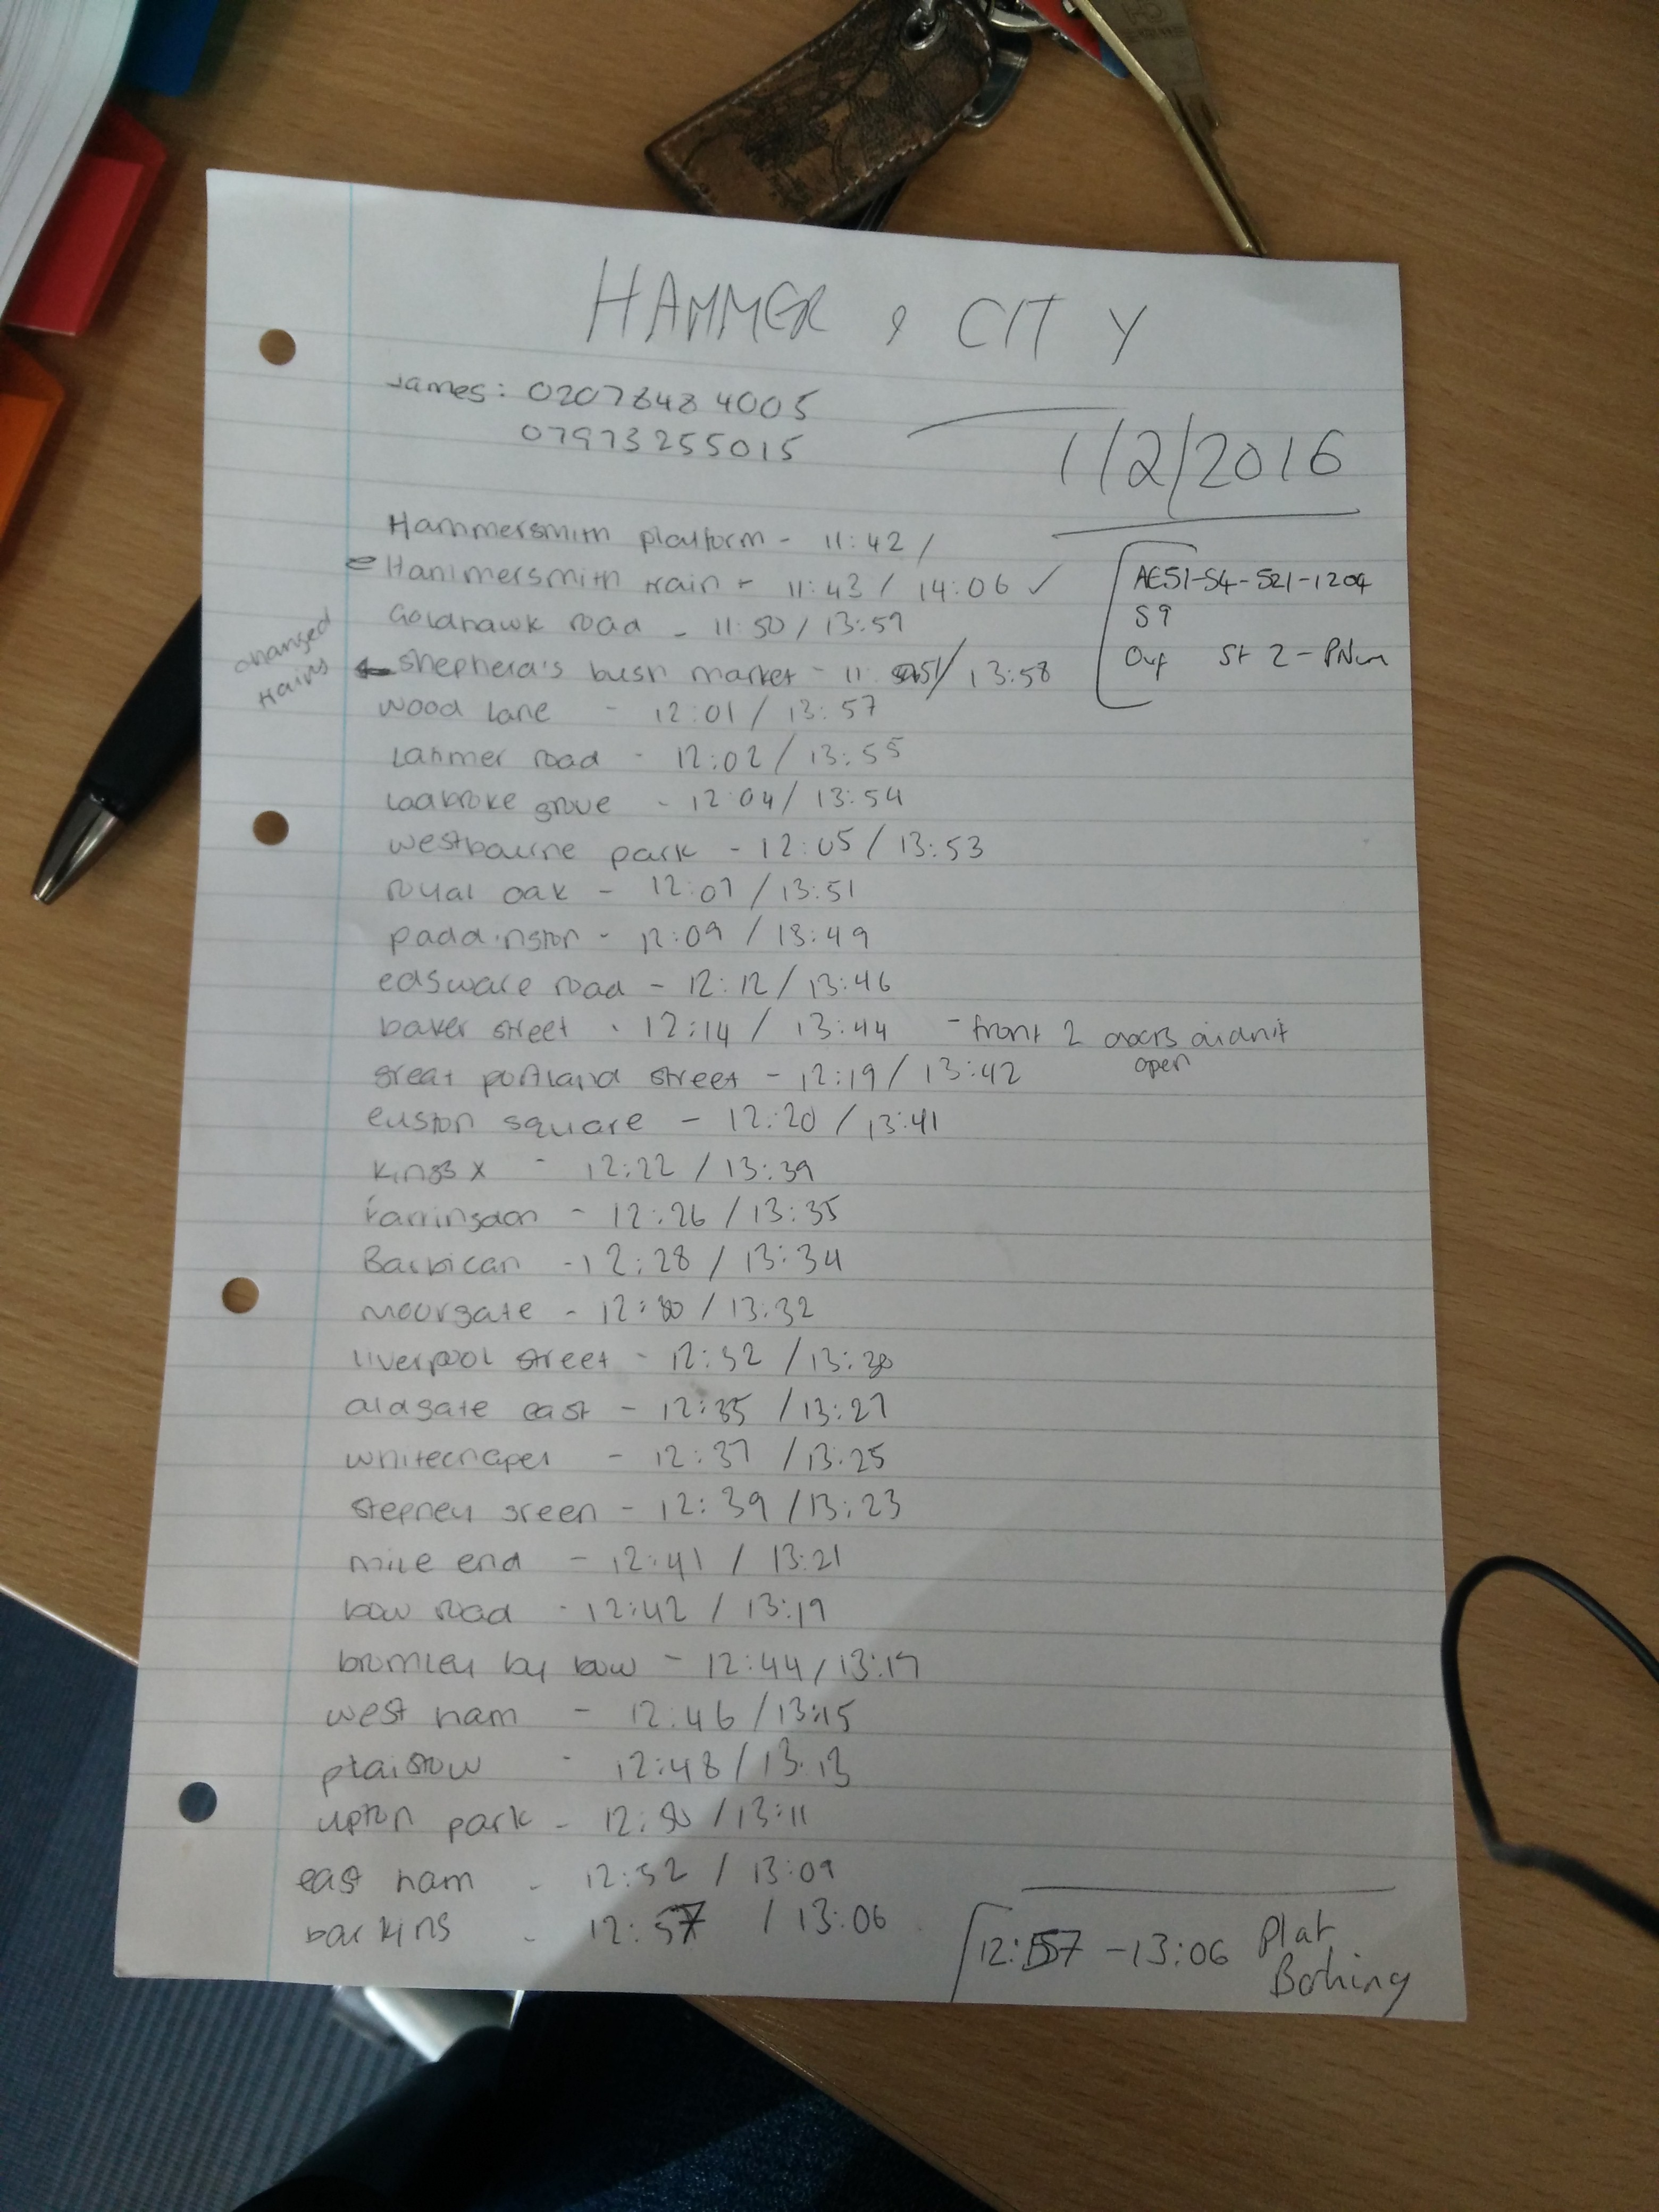 HAMMER & CITY
James: 0207848 4005
07973255015
1/2/2016
Hammersmith platform - 11:42 /
Hammersmith train - 11:43 / 14:06 ✓
AE51-S4-521-1204
S9
St 2-PNum
Goldhawk road - 11:50 / 13:59
changed
trains
shepherd's bush market - 11:51 / 13:58
wood lane - 12:01 / 13:57
Latimer road - 12:02 / 13:55
Ladbroke grove - 12:04 / 13:54
westbourne park - 12:05 / 13:53
royal oak - 12:07 / 13:51
paddington - 12:09 / 13:49
edgware road - 12:12 / 13:46
baker street - 12:14 / 13:44 - front 2 doors didnit
open
great portland street - 12:19 / 13:42
euston square - 12:20 / 13:41
kings x - 12:22 / 13:39
farringdon - 12:26 / 13:35
Barbican - 12:28 / 13:34
moorgate - 12:30 / 13:32
liverpool street - 12:32 / 13:30
aldgate east - 12:35 / 13:27
whitechapel - 12:37 / 13:25
stepney green - 12:39 / 13:23
mile end - 12:41 / 13:21
bow road - 12:42 / 13:19
bromley by bow - 12:44 / 13:17
west ham - 12:46 / 13:15
plaistow - 12:48 / 13:13
upton park - 12:50 / 13:11
east ham - 12:52 / 13:09
barking - 12:57 / 13:06
12:57 - 13:06 Plat
Barking